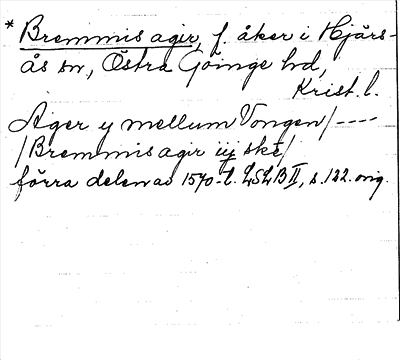 * Bremmis agir, f. åker i Hjärs-
ås sn, Östra Göinge hd,
Krist. l.
Ager y mellum Vongen/----
/Bremmis agir iij ske/
förra delen av 1570-t. LSLB II, s. 122. orig.